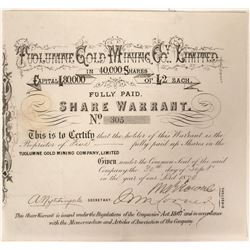 TUOLUMNE GOLD MINING CO. LIMITED
IN 40,000 SHARES
CAPITAL £80000 OF £2 EACH.
FULLY PAID.
SHARE WARRANT.
No 305
This is to Certify that the holder of this Warrant is the
Proprietor of Five fully paid up Shares in the
TUOLUMNE GOLD MINING COMPANY, LIMITED
Given under the Common Seal of the said
Company the 30th day of Sept.
in the year of our Lord 1870
A Nightingale SECRETARY.
This Share Warrant is issued under the Regulations of the Companies' Act, 1867 and in accordance
with the Memorandum and Articles of Association of the Company.